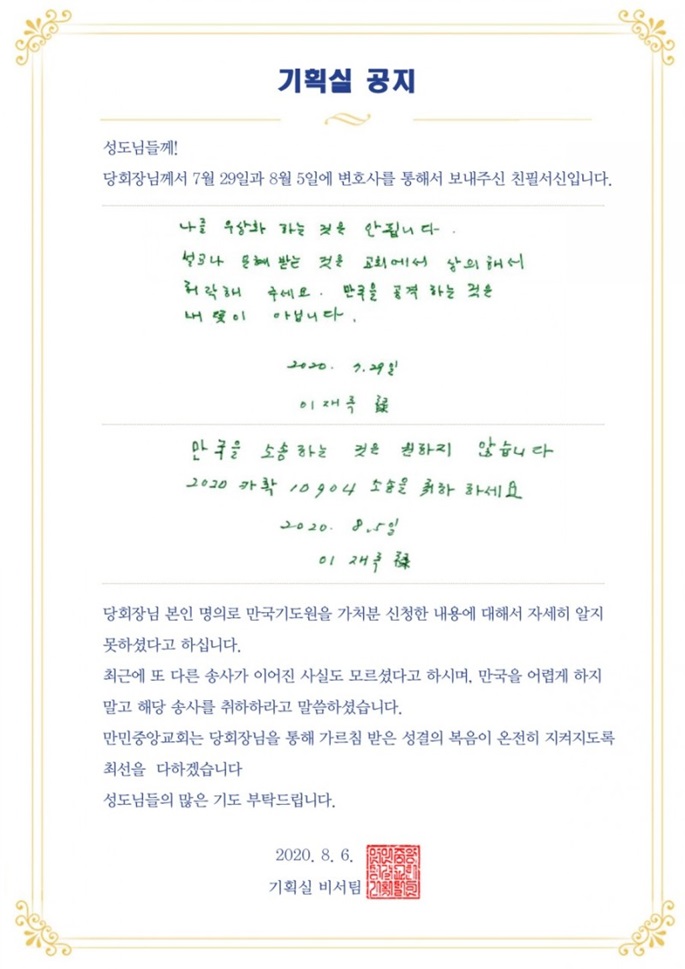 기획실 공지
성도님들께!
당회장님께서 7월 29일과 8월 5일에 변호사를 통해서 보내주신 친필서신입니다.
나를 우상화 하는 것은 안됩니다.
설교나 은혜 받는 것은 교회에서 상의해서
허락해 주세요. 만국을 공격 하는 것은
내 뜻이 아닙니다.
2020. 7.29일
이재록
만국을 소송하는 것은 원하지 않습니다
2020 카확 10904 소송을 취하 하세요
2020. 8.5일
이재록
당회장님 본인 명의로 만국기도원을 가처분 신청한 내용에 대해서 자세히 알지
못하셨다고 하십니다.
최근에 또 다른 송사가 이어진 사실도 모르셨다고 하시며, 만국을 어렵게 하지
말고 해당 송사를 취하하라고 말씀하셨습니다.
만민중앙교회는 당회장님을 통해 가르침 받은 성결의 복음이 온전히 지켜지도록
최선을 다하겠습니다
성도님들의 많은 기도 부탁드립니다.
2020. 8. 6.
기획실 비서팀